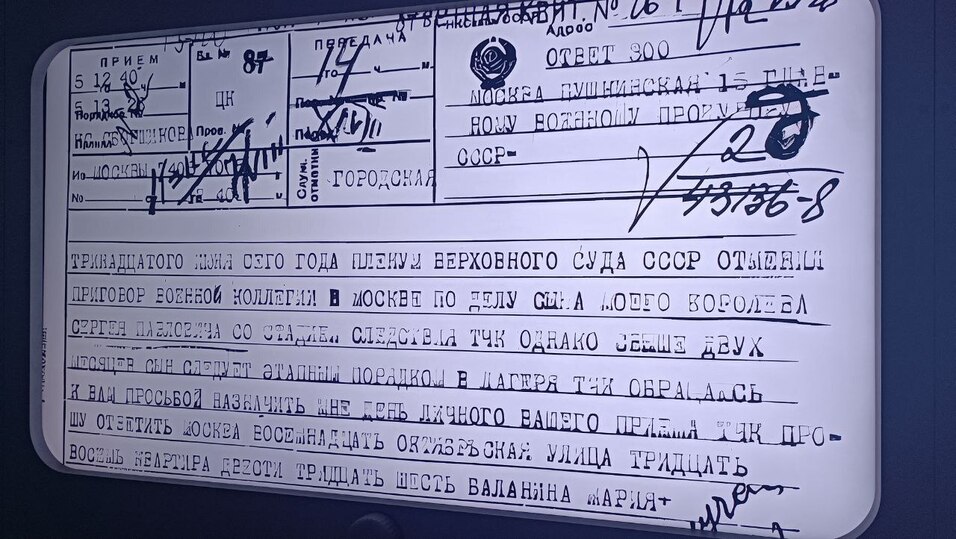 КВИТ. №
ПРИЕМ
Бл. №
87
ПЕРЕДАЧА
Адрес
5 12 40
14
го ч. м.
ОТВЕТ 300
5 13
ЦК
МОСКВА ПУШКИНСКАЯ 15 ГЛАВ-
НОМУ ВОЕННОМУ ПРОКУРОРУ
Принял
СССР-
Из МОСКВЫ
Служ. отметки
ГОРОДСКАЯ
№
20
43136-8
ТРИНАДЦАТОГО ИЮНЯ СЕГО ГОДА ПЛЕНУМ ВЕРХОВНОГО СУДА СССР ОТМЕНИЛ
ПРИГОВОР ВОЕННОЙ КОЛЛЕГИИ В МОСКВЕ ПО ДЕЛУ СЫНА МОЕГО КОРОЛЕВА
СЕРГЕЯ ПАВЛОВИЧА СО СТАДИИ СЛЕДСТВИЯ ТЧК ОДНАКО СВЫШЕ ДВУХ
МЕСЯЦЕВ СЫН СЛЕДУЕТ ЭТАПНЫМ ПОРЯДКОМ В ЛАГЕРЯ ТЧК ОБРАЩАЮСЬ
К ВАМ ПРОСЬБОЙ НАЗНАЧИТЬ МНЕ ДЕНЬ ЛИЧНОГО ВАШЕГО ПРИЕМА ТЧК ПРО-
ШУ ОТВЕТИТЬ МОСКВА ВОСЕМНАДЦАТЬ ОКТЯБРЬСКАЯ УЛИЦА ТРИДЦАТЬ
ВОСЕМЬ КВАРТИРА ДВЕСТИ ТРИДЦАТЬ ШЕСТЬ БАЛАНИНА МАРИЯ+